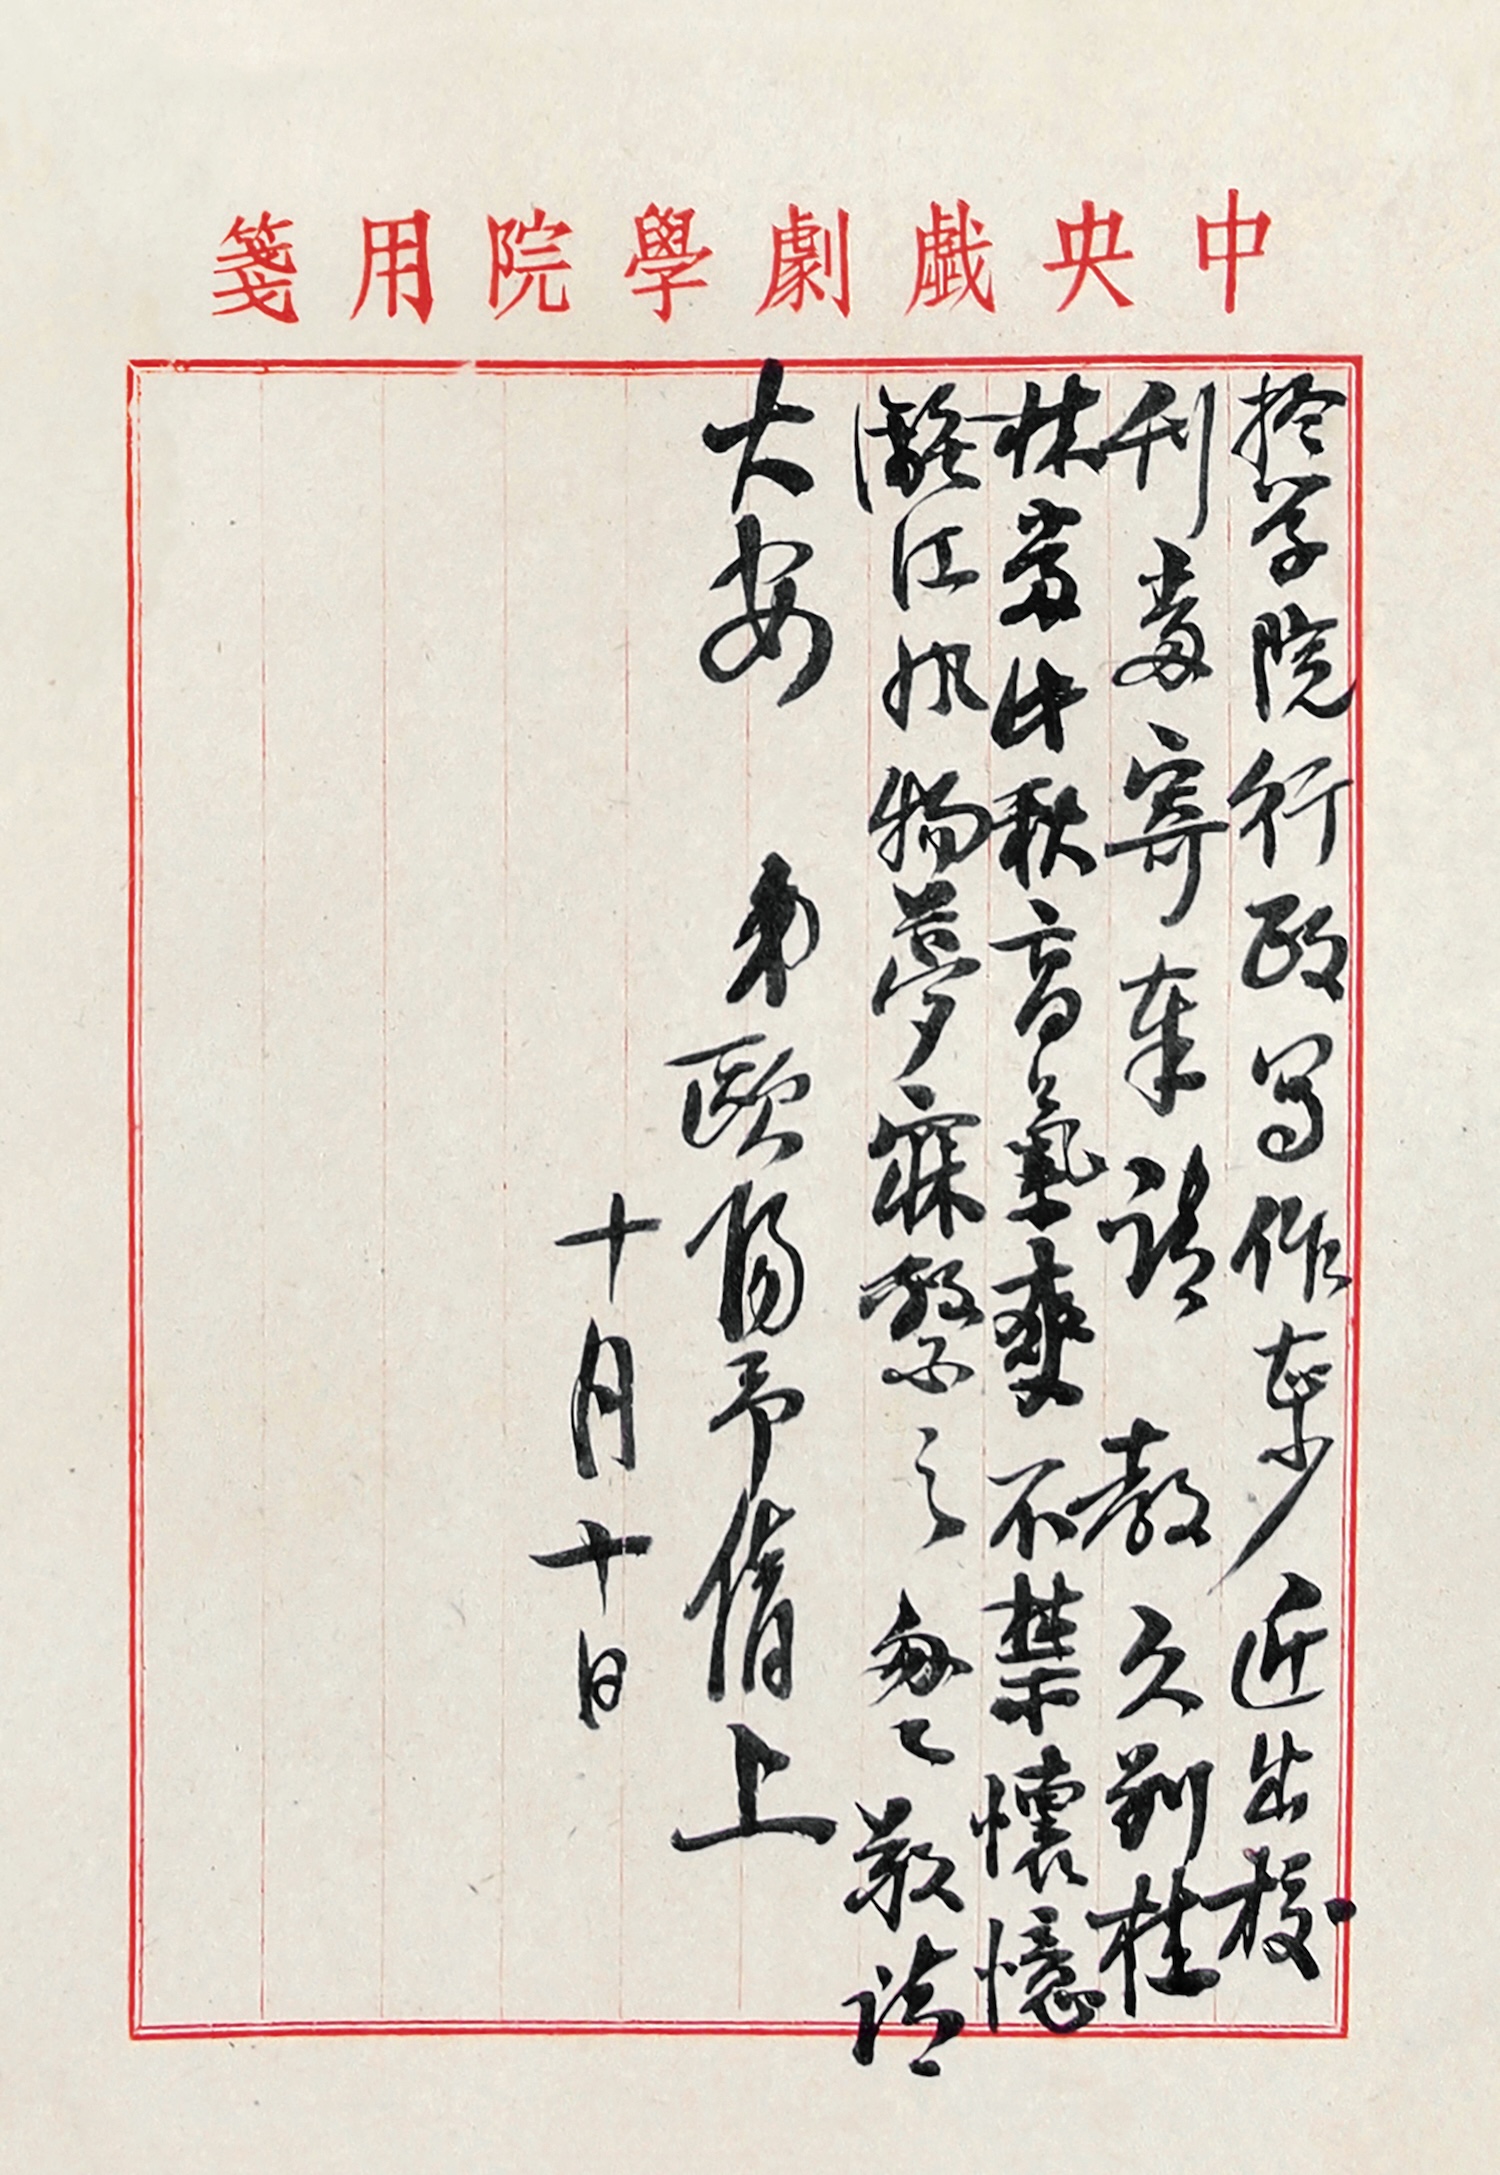 中央戲劇學院用箋
於学院行政写作甚少近出校
刊當寄奉請 教久別桂
林當此秋高氣爽不禁懷憶
灕江風物夢寐繫之匆匆敬請
大安 弟歐陽予倩上
十月十日